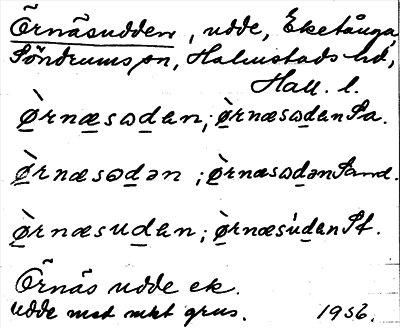 Örnäsudden, udde, Eketånga,
Söndrums sn, Halmstads hd,
Hall. l.
Ø̀rnæsωden; ø̀rnæsωdenSa.
Ø̀rnæsωdən; ø̀rnæsωdənSand.
Ø̀rnæsuden; ø̀rnæsúdenSt.
Örnäs udde ek.
udde med mkt grus. 1936.